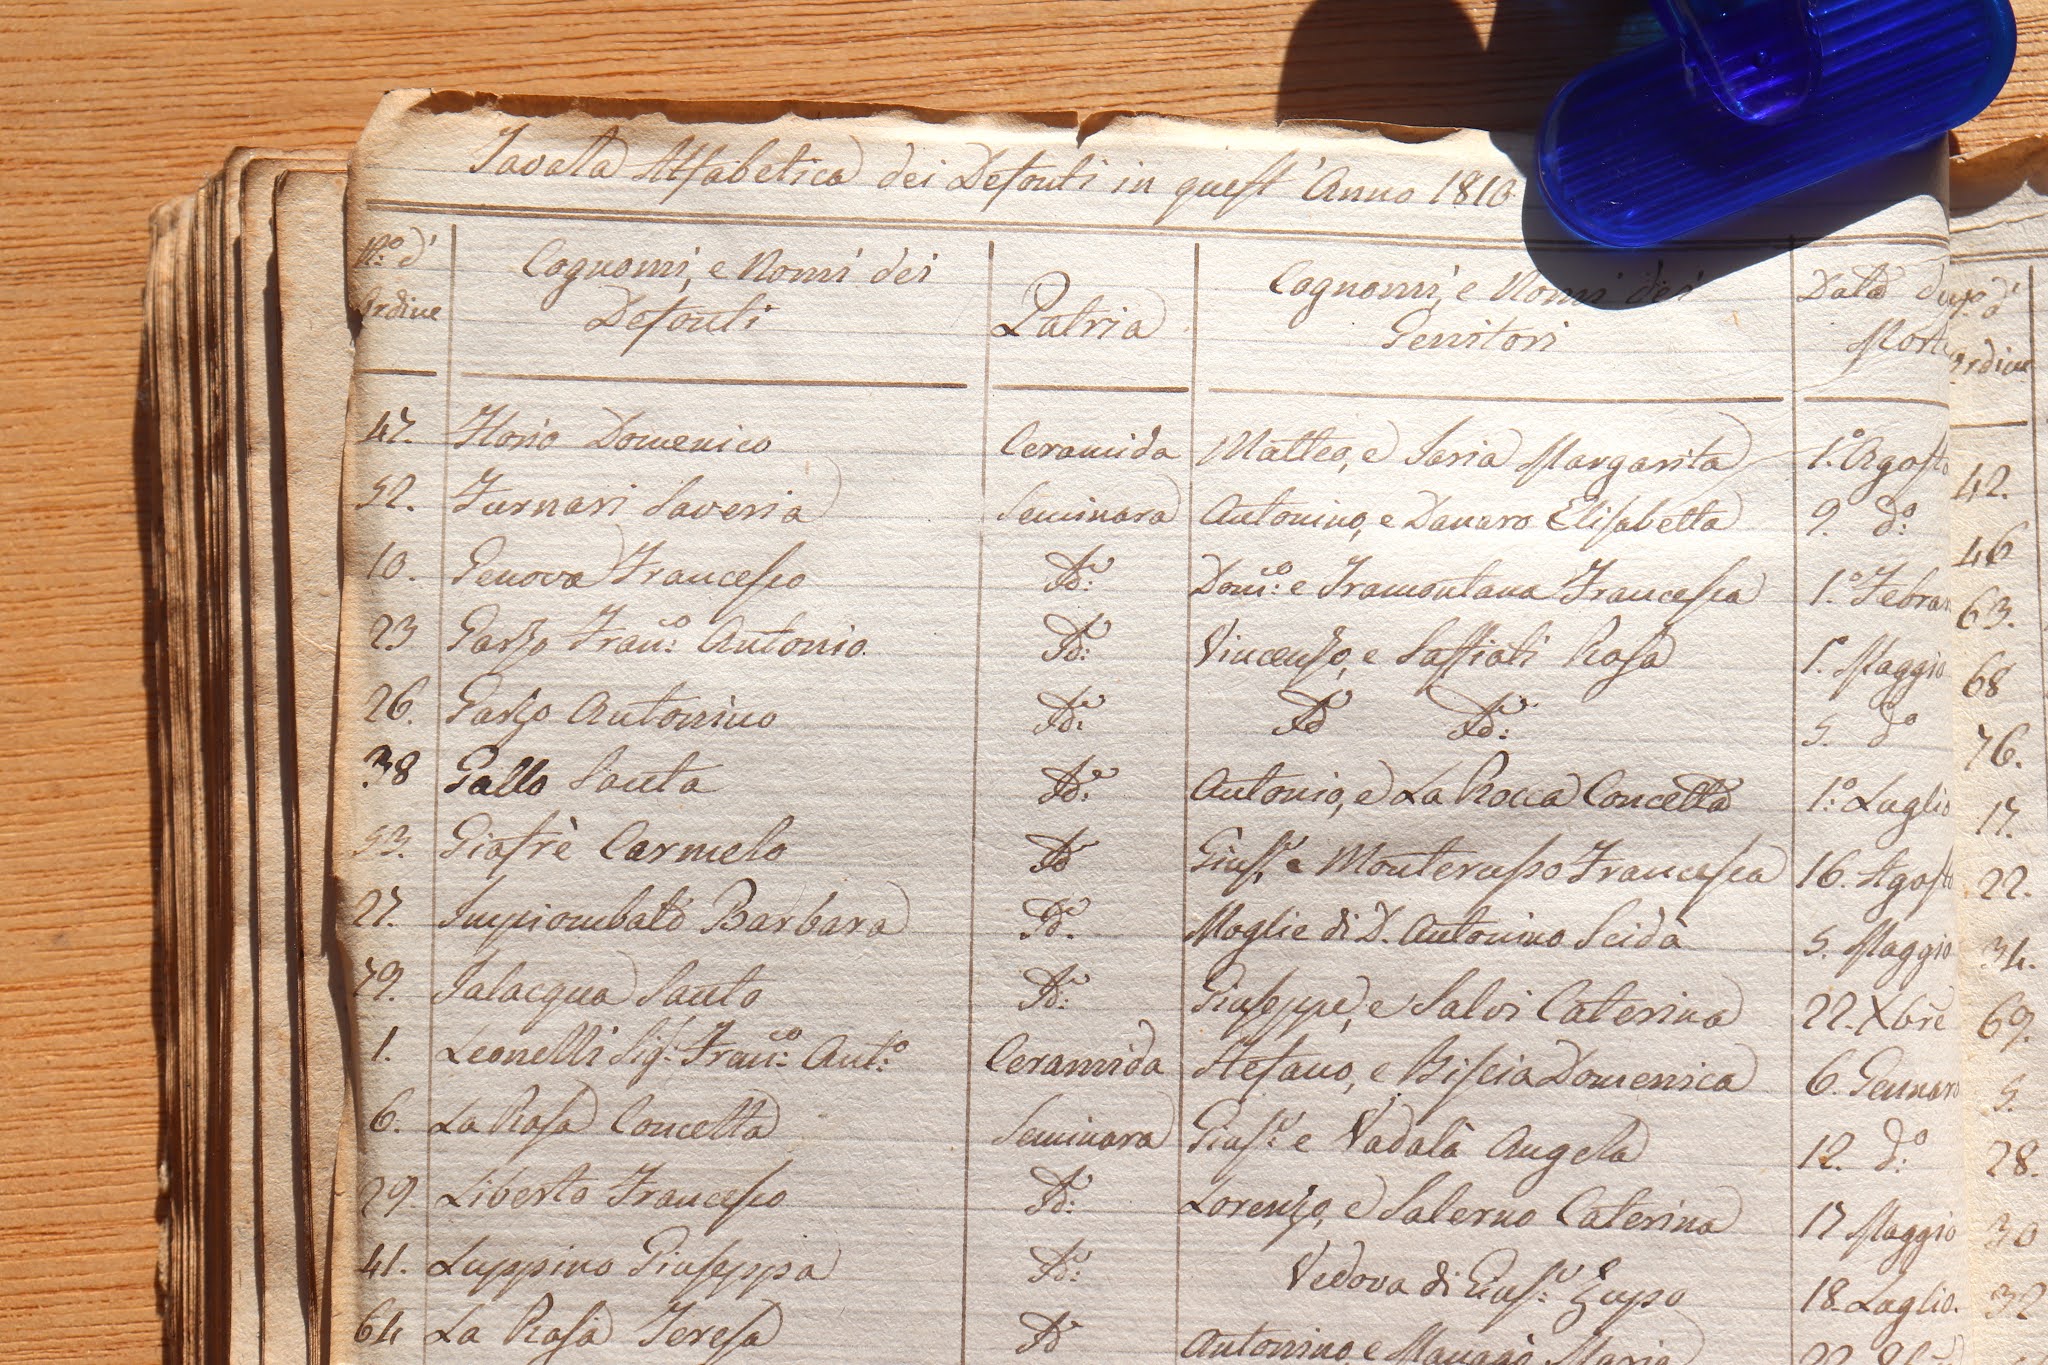 Tavola Alfabetica dei Defonti in quest' Anno 1810
N.º d' Ordine Cognomi, e Nomi dei Defonti Patria Cognomi, e Nomi dei Genitori Data Morte
47. Florio Domenico Ceramida Matteo, e Saria Margarita 1.º Agosto
52. Furnari Saveria Seminara Antonino, e Danaro Elisabetta 9. d.º
10. Genova Francesco Id.: Dom.co: e Tramontana Francesca 1.º Febrar
23 Garzo Fran.co: Antonio. Id.: Vincenzo, e Saffioti Rosa 1.º Maggio
26. Garzo Antonino Id.: Id Id.: 5. d.º
38 Gallo Santa Id.: Antonio, e La Rocca Concetta 1.º: Luglio
53. Giofrè Carmelo Id Gius.e, e Monterusso Francesca 16. Agosto
27. Impiombato Barbara Id. Moglie di D. Antonino Scidà 5. Maggio
79. Jalacqua Santo Id.: Giuseppe, e Salvi Caterina 22. Xbre
1. Leonelli Sig.r Fran.co: Ant.º: Ceramida Stefano, e Biscia Domenica 6. Gennaro
6. La Rosa Concetta Seminara Gius.e: e Vadalà Angela 12. d.º:
29. Liberto Francesco Id.: Lorenzo, e Salerno Caterina 17 Maggio
41. Luppino Giuseppa Id.: Vedova di Gius.e: Zupo 18. Luglio.
64 La Rosa Teresa Id Antonino, e Maria
N.º d'
Ordine
42.
46
63.
68
76.
17.
22.
34.
69.
5.
28.
30
32